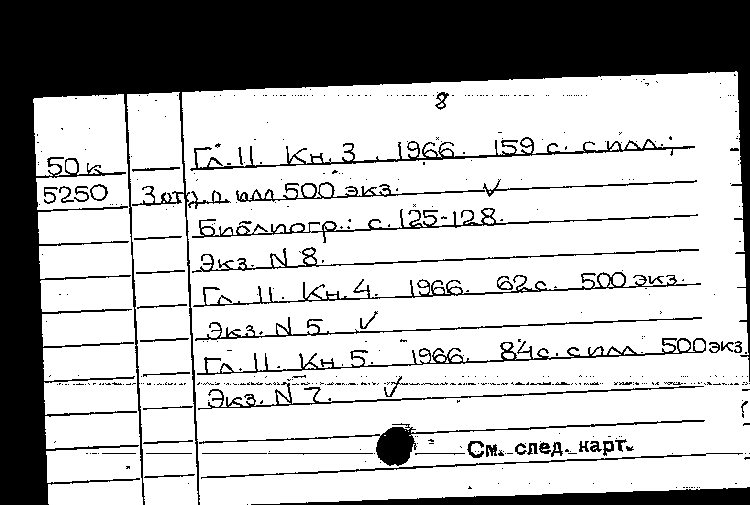 8
Гл. II. Кн. 3. 1966. 159 с. с илл.;
50 к
5250 3 отд. л. илл 500 экз. ✓
Библиогр.: с. 125-128.
Экз. N 8.
Гл. II. Кн. 4. 1966. 62 с. 500 экз.
Экз. N 5. ✓
Гл. II. Кн. 5. 1966. 84 с. с илл 500 экз.
Экз. N 7. ✓
См. след. карт.